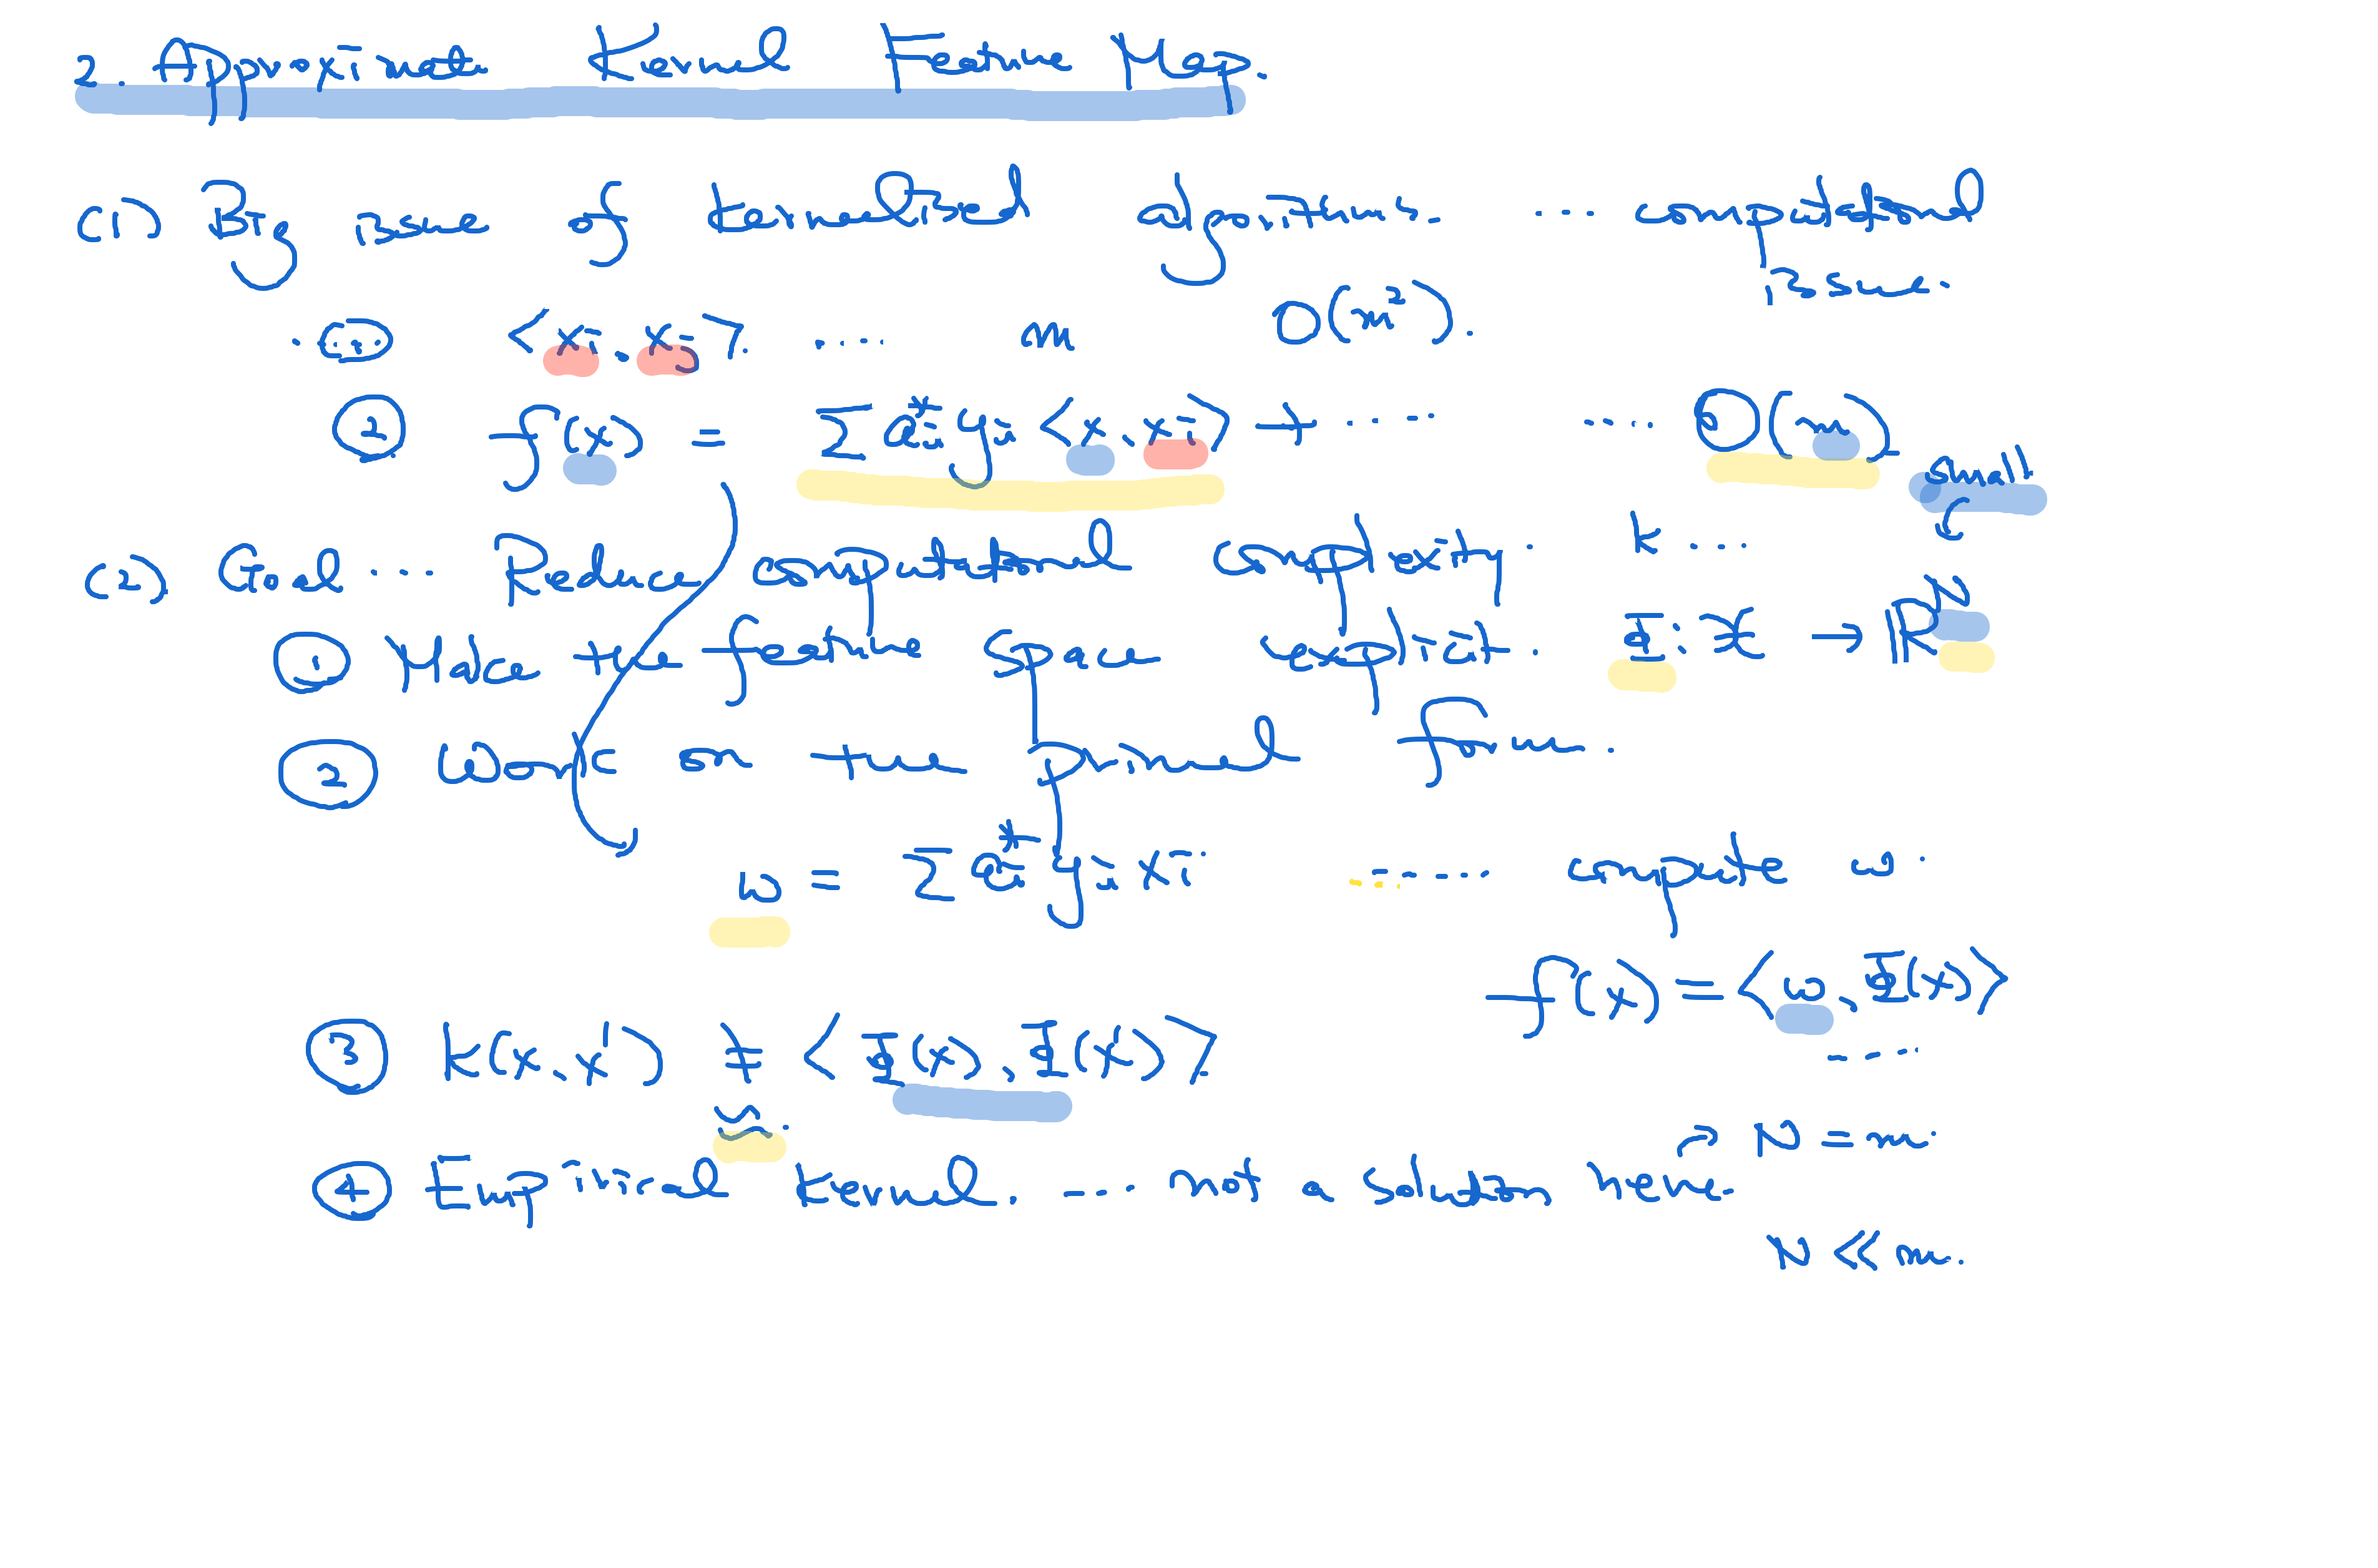 2. Approximate Kernel Feature Map.
(1) Big issue of kernelized algorithms. ... computational
issue.
① <xi, xj>. .... m O(m²).
② f(x) = Σ αi* yi <x, xi> + .... .... O(m)
small
(2) Goal ... Reduce computational complexity. k ...
① Make the feature space explicit. Φ: X → ℝᴺ
② Work on the primal form.
w = Σ αi* yi xi ..... compute w.
f(x) = <w, Φ(x)>
③ K(x, x') ≠ <Φ(x), Φ(x')>
≈.
→ N = m.
④ Empirical kernel. ... not a solution here.
N << m.